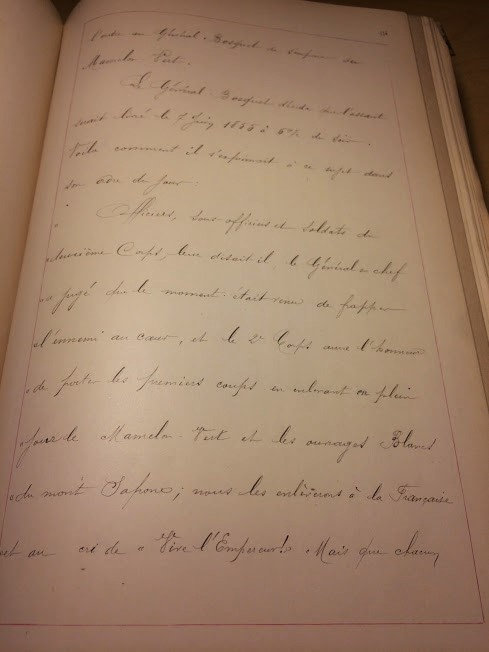 l'ordre au Général Bosquet de s'emparer du
Mamelon Vert.
Le Général Bosquet décida que l'assaut
serait livré le 7 Juin 1855 à 5h½ du soir.
Voilà comment il s'exprimait à ce sujet dans
son ordre du jour:
" Officiers, sous officiers et soldats du
"deuxième Corps, leur disait il le Général en chef
"a jugé que le moment était venu de frapper
"l'ennemi au cœur, et le 2e Corps aura l'honneur
"de porter les premiers coups en enlevant en plein
"jour le Mamelon-Vert et les ouvrages Blancs
"du mont Sapone; nous les enlèverons à la Française
et au cri de "Vive l'Empereur! Mais que chacun